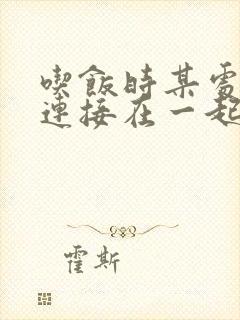 喫飯時某處
連接在一起
霍斯